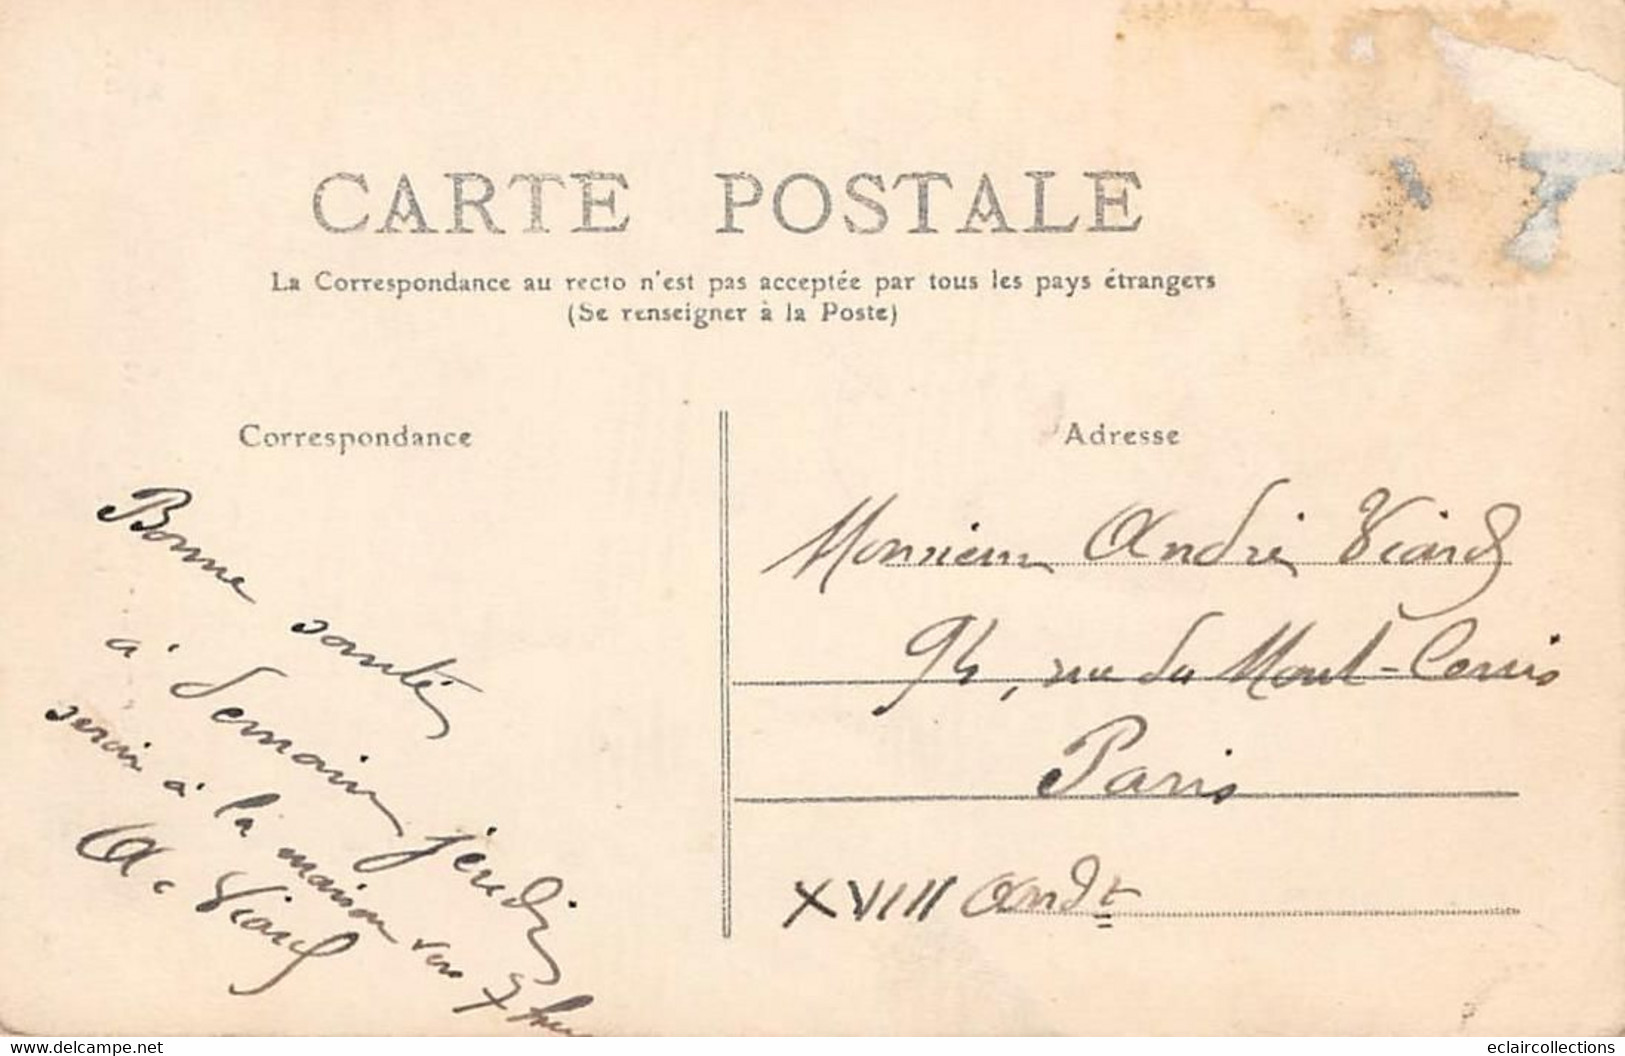 CARTE POSTALE
La Correspondance au recto n'est pas acceptée par tous les pays étrangers
(Se renseigner à la Poste)
Correspondance
Adresse
Bonne santé
à demain jeudi
serai à la maison vers 7 heu
A. Viard
Monsieur André Viard
94, rue du Mont-Cenis
Paris
XVIII Arrdt
www.delcampe.net
eclaircollections